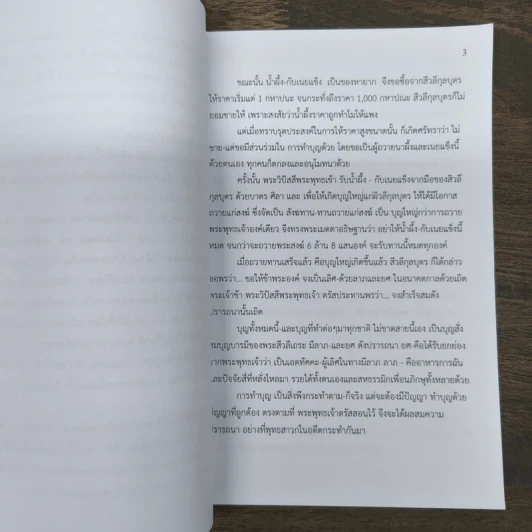 3
ขณะนั้น น้ำผึ้ง-กับเนยแข็ง เป็นของหายาก จึงขอซื้อจากสีวลีกุลบุตร
ให้ราคาเริ่มแต่ 1 กหาปนะ จนกระทั่งถึงราคา 1,000 กหาปณะ สีวลีกุลบุตรก็ไม่
ยอมขายให้ เพราะสงสัยว่าน้ำผึ้งราคาถูกทำไมให้แพง
แต่เมื่อทราบจุดประสงค์ในการให้ราคาสูงขนาดนั้น ก็เกิดศรัทธาว่า ไม่
ขาย-แต่ขอมีส่วนร่วมใน การทำบุญด้วย โดยขอเป็นผู้ถวายน้ำผึ้งและเนยแข็งนี้
ด้วยตนเอง ทุกคนก็ตกลงและอนุโมทนาด้วย
ครั้งนั้น พระวิปัสสีพระพุทธเจ้า รับน้ำผึ้ง - กับเนยแข็งจากมือของสีวลี
กุลบุตร ด้วยบาตร ศิลา และ เพื่อให้เกิดบุญใหญ่แก่สีวลีกุลบุตร ให้ได้มีโอกาส
ถวายแก่สงฆ์ ซึ่งจัดเป็น สังฆทาน-ทานถวายแก่สงฆ์ เป็น บุญใหญ่กว่าการถวาย
พระพุทธเจ้าองค์เดียว จึงทรงพระเมตตาอธิษฐานว่า อย่าให้น้ำผึ้ง-กับเนยแข็งนี้
หมด จนกว่าจะถวายพระสงฆ์ 6 ล้าน 8 แสนองค์ จะรับทานนี้หมดทุกองค์
เมื่อถวายทานเสร็จแล้ว คือบุญใหญ่เกิดขึ้นแล้ว สีวลีกุลบุตร ก็ได้กล่าว
ขอพรว่า... ขอให้ข้าพระองค์ จงเป็นเลิศ-ด้วยลาภและยศ ในอนาคตกาลด้วยเถิด
พระเจ้าข้า พระวิปัสสีพระพุทธเจ้า ตรัสประทานพรว่า... จงสำเร็จสมดัง
ปรารถนานั้นเถิด
บุญทั้งหมดนี้-และบุญที่ทำต่อๆมาทุกชาติ ไม่ขาดสายนี้เอง เป็นบุญสั่ง
สมบุญบารมีของพระสีวลีเถระ มีลาภ-และยศ ดังปรารถนา ยศ-คือได้รับยกย่อง
จากพระพุทธเจ้าว่า เป็นเอตทัคคะ-ผู้เลิศในทางมีลาภ ลาภ - คืออาหารการฉัน
และปัจจัยสี่ที่หลั่งไหลมา รวยได้ทั้งตนเองและสหธรรมิกเพื่อนภิกษุทั้งหลายด้วย
การทำบุญ เป็นสิ่งพึงกระทำตาม-ก็จริง แต่จะต้องมีปัญญา ทำบุญด้วย
ปัญญาที่ถูกต้อง ตรงตามที่ พระพุทธเจ้าตรัสสอนไว้ จึงจะได้ผลสมความ
ปรารถนา อย่างที่พุทธสาวกในอดีตกระทำกันมา